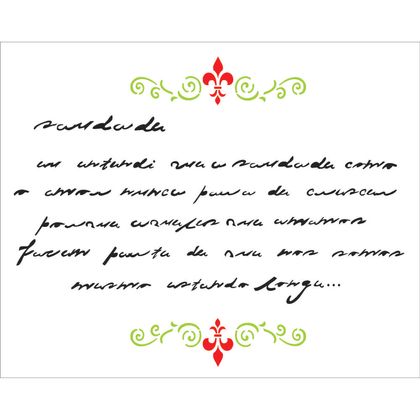 saudade
eu entendi que a saudade como
o amor nunca para de crescer
porque aqueles que amamos
fazem parte do que nos somos
mesmo estando longe...